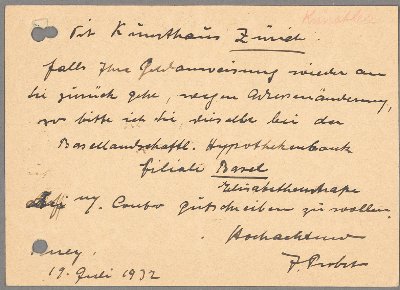 Tit Kunsthaus Zürich.
falls Ihre Geldanweisung wieder an
Sie zurück geht, wegen Adressenänderung,
so bitte ich Sie dieselbe bei der
Basellandschaftl. Hypothekenbank
Filiale Basel
Elisabethenstraße
Conto gutschreiben zu wollen.
Hochachtend
J. Probst
19. Juli 1932